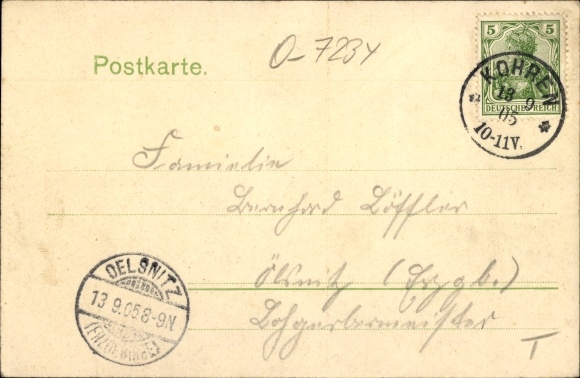 O-7234
Postkarte.
5 5
DEUTSCHES REICH
KOHREN
13 9
05
10-11V.
Familie
Bernhard Löffler
Ölsnitz (Erzgb.)
Lohgerbermeister
T
OELSNITZ
13.9.05 8-9N
(ERZGEBIRGE)